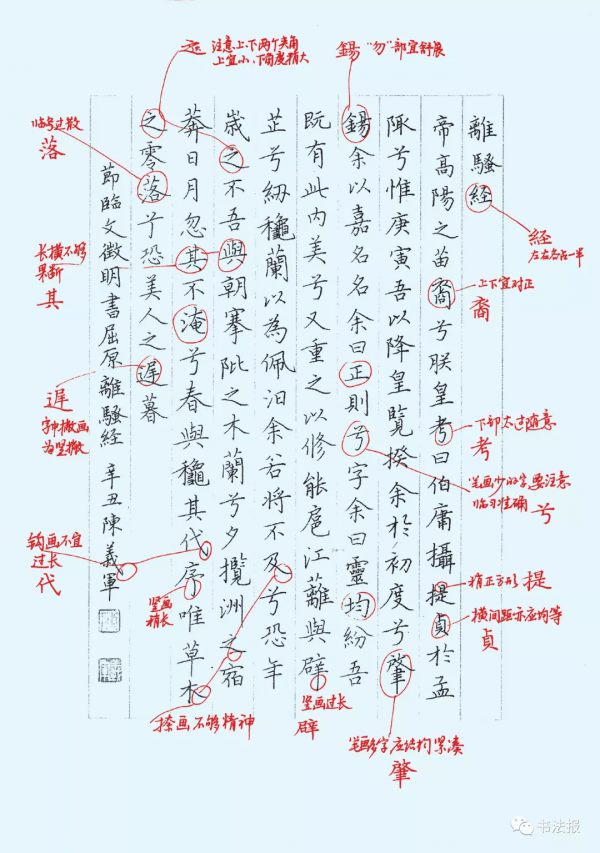 離騷経
帝高陽之苗裔兮朕皇考曰伯庸攝提貞於孟
陬兮惟庚寅吾以降皇覽揆余於初度兮肇
錫余以嘉名名余曰正則兮字余曰靈均紛吾
既有此内美兮又重之以修能扈江離與辟
芷兮紉穐蘭以為佩汨余若將不及兮恐年
歲之不吾與朝搴阰之木蘭兮夕攬洲之宿
莽日月忽其不淹兮春與穐其代序唯草木
之零落兮恐美人之遅暮
節臨文徵明書屈原離騷經 辛丑陳義軍
注意上、下两个夹角
上宜小、下角度稍大
錫 "勿"部宜舒展
経
左右各占一半
上下宜对正
裔
下部太过随意
考
笔画少的字，要注意
临习准确 兮
稍正方形 提
横间距亦应均等
貞
笔画多字应结构紧凑
肇
竖画过长
辟
捺画不够精神
竖画
稍长
钩画不宜
过长
代
遅
字中撇画
为竖撇
长横不够
果断
其
临写过散
落
书法报